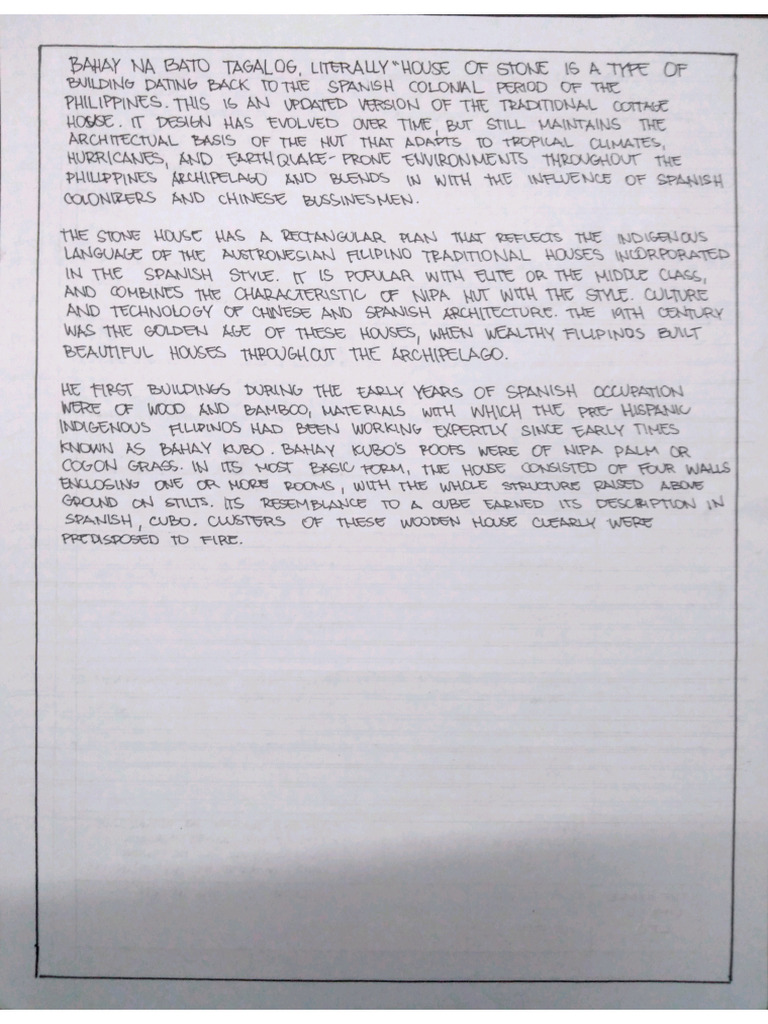 BAHAY NA BATO TAGALOG, LITERALLY "HOUSE OF STONE IS A TYPE OF
BUILDING DATING BACK TO THE SPANISH COLONIAL PERIOD OF THE
PHILIPPINES. THIS IS AN UPDATED VERSION OF THE TRADITIONAL COTTAGE
HOUSE. IT DESIGN HAS EVOLVED OVER TIME, BUT STILL MAINTAINS THE
ARCHITECTUAL BASIS OF THE HUT THAT ADAPTS TO TROPICAL CLIMATES,
HURRICANES, AND EARTHQUAKE-PRONE ENVIRONMENTS THROUGHOUT THE
PHILIPPINES ARCHIPELAGO AND BLENDS IN WITH THE INFLUENCE OF SPANISH
COLONIZERS AND CHINESE BUSSINESMEN.
THE STONE HOUSE HAS A RECTANGULAR PLAN THAT REFLECTS THE INDIGENOUS
LANGUAGE OF THE AUSTRONESIAN FILIPINO TRADITIONAL HOUSES INCORPORATED
IN THE SPANISH STYLE. IT IS POPULAR WITH ELITE OR THE MIDDLE CLASS,
AND COMBINES THE CHARACTERISTIC OF NIPA HUT WITH THE STYLE. CULTURE
AND TECHNOLOGY OF CHINESE AND SPANISH ARCHITECTURE. THE 19TH CENTURY
WAS THE GOLDEN AGE OF THESE HOUSES, WHEN WEALTHY FILIPINOS BUILT
BEAUTIFUL HOUSES THROUGHOUT THE ARCHIPELAGO.
HE FIRST BUILDINGS DURING THE EARLY YEARS OF SPANISH OCCUPATION
WERE OF WOOD AND BAMBOO, MATERIALS WITH WHICH THE PRE-HISPANIC
INDIGENOUS FILIPINOS HAD BEEN WORKING EXPERTLY SINCE EARLY TIMES
KNOWN AS BAHAY KUBO. BAHAY KUBO'S ROOFS WERE OF NIPA PALM OR
COGON GRASS. IN ITS MOST BASIC FORM, THE HOUSE CONSISTED OF FOUR WALLS
ENCLOSING ONE OR MORE ROOMS, WITH THE WHOLE STRUCTURE RAISED ABOVE
GROUND ON STILTS. ITS RESEMBLANCE TO A CUBE EARNED ITS DESCRIPTION IN
SPANISH, CUBO. CLUSTERS OF THESE WOODEN HOUSE CLEARLY WERE
PREDISPOSED TO FIRE.